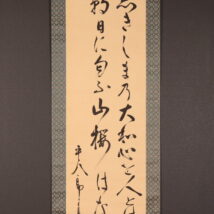 しきしまの大和心を人とは
朝日に匂ふ山桜はな